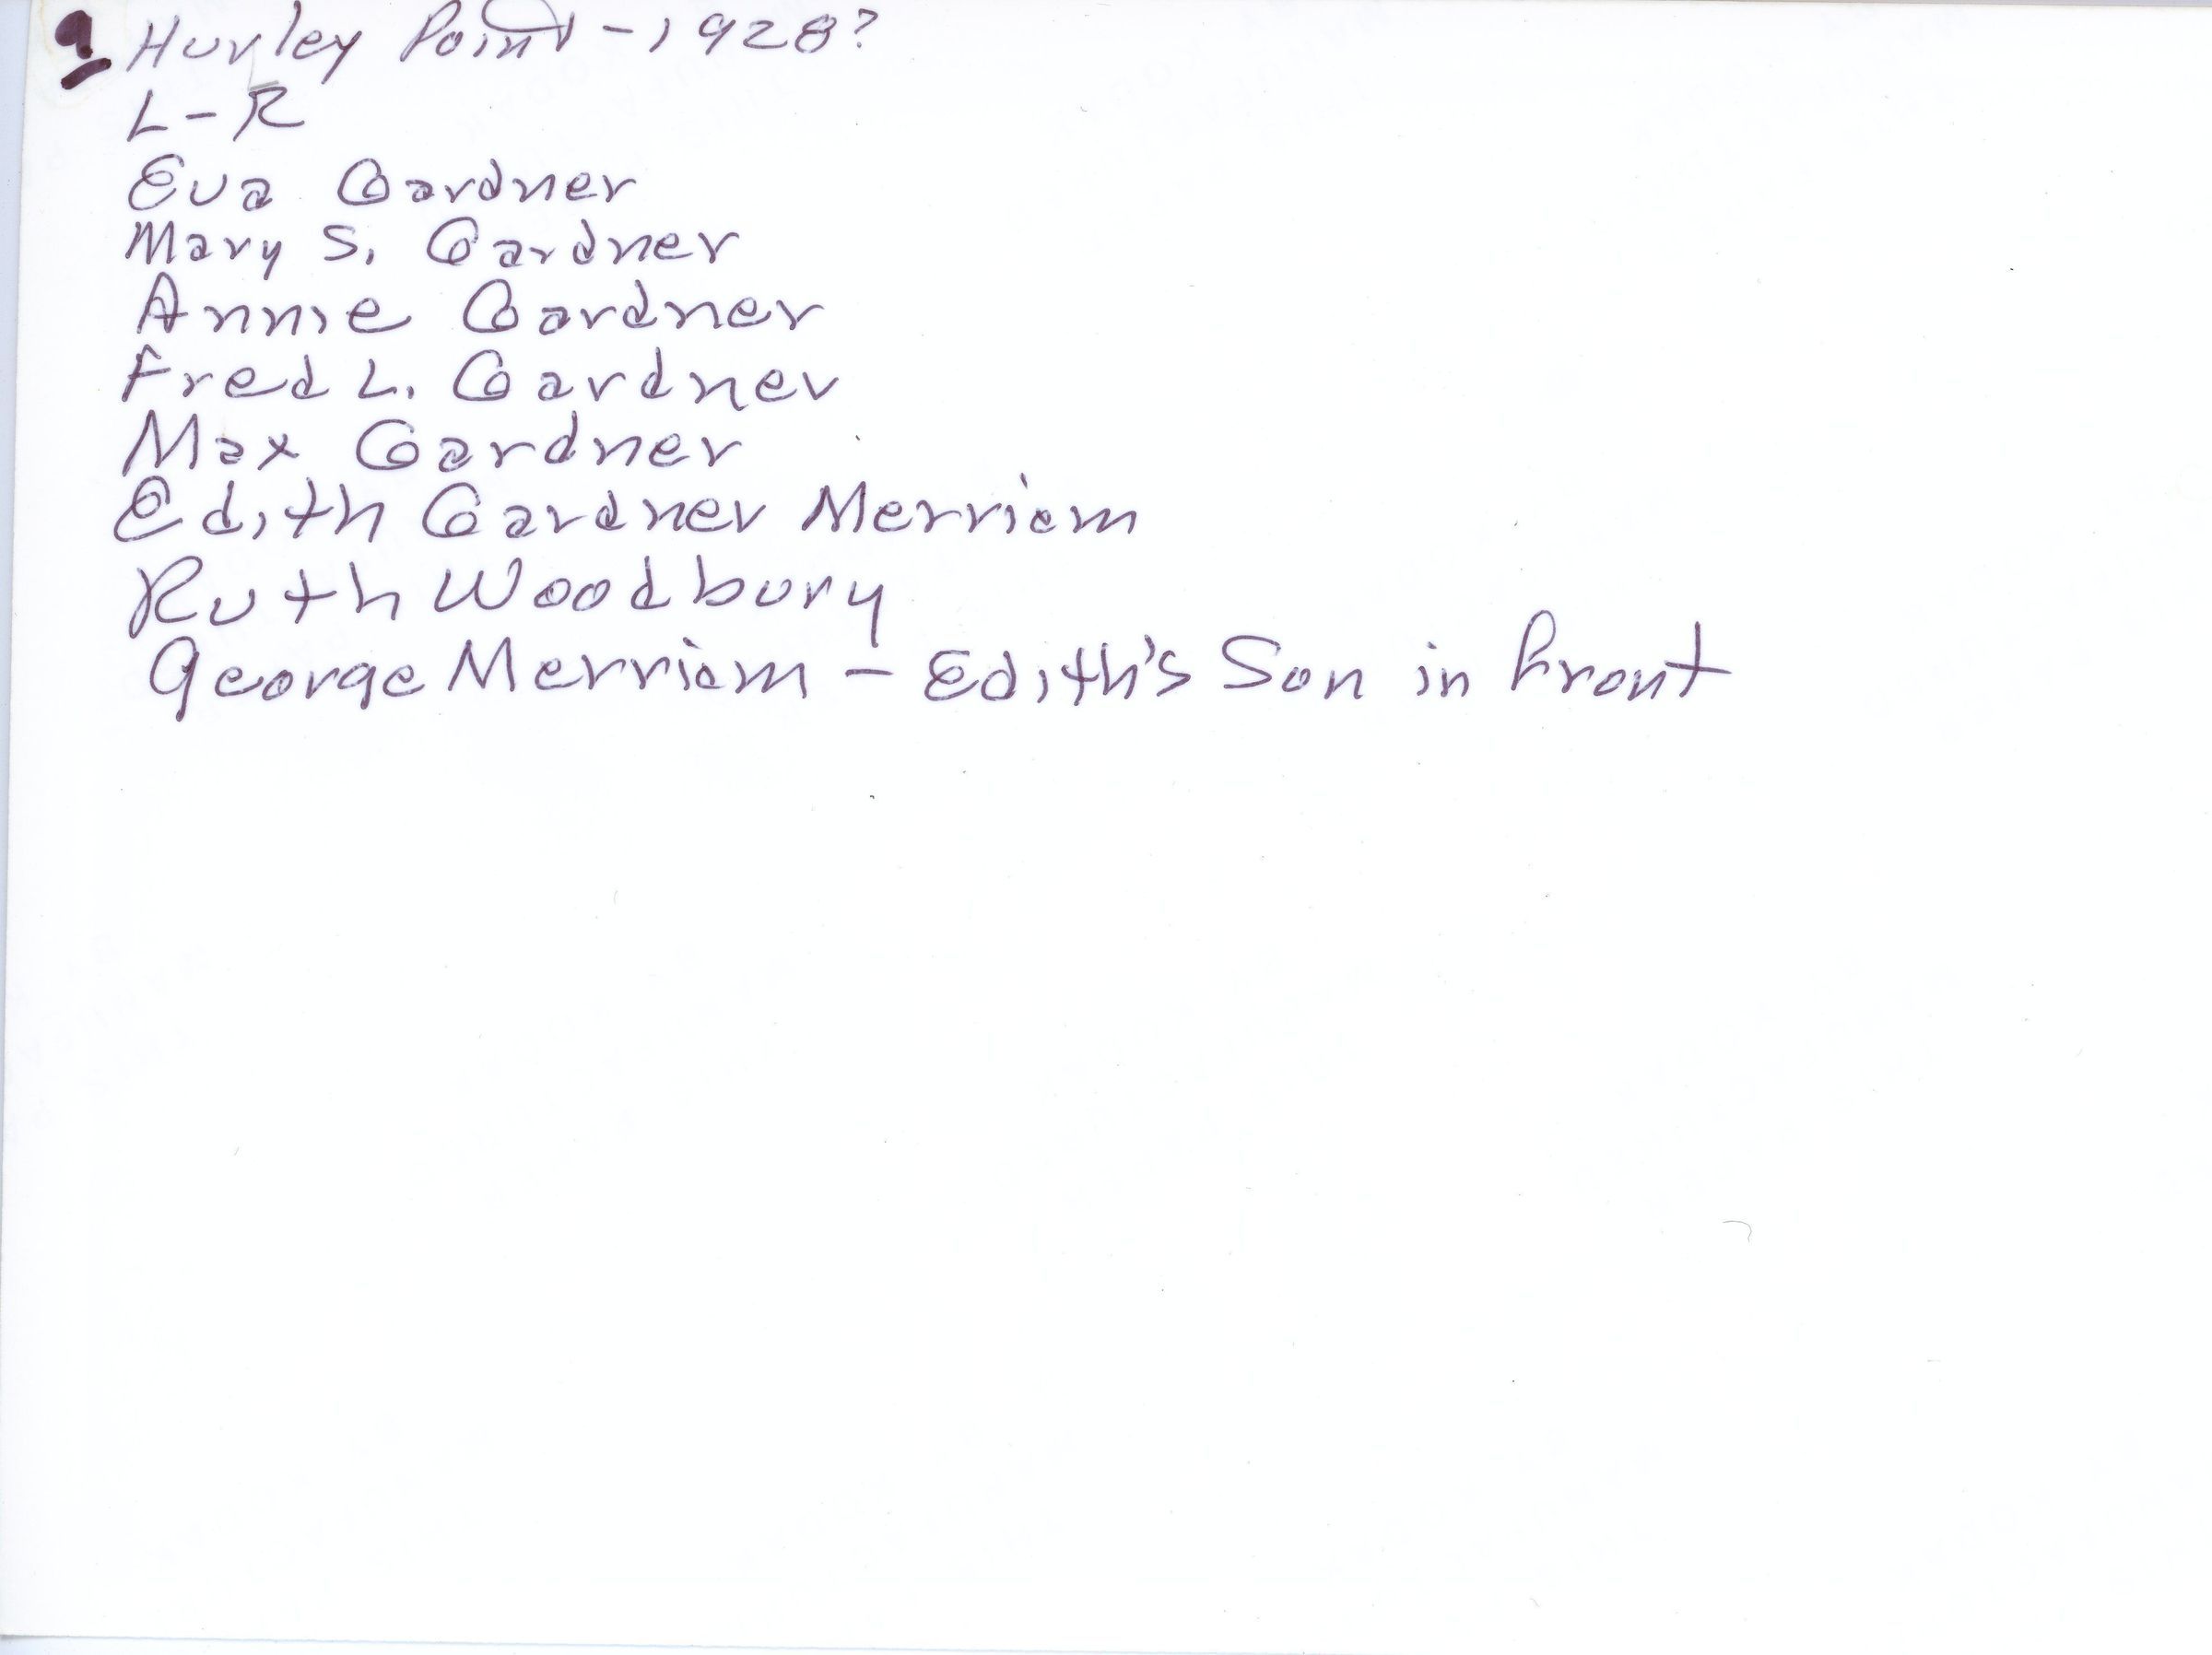 9 Hurley Point - 1928?
L-R
Eva Gardner
Mary S. Gardner
Annie Gardner
Fred L. Gardner
Max Gardner
Edith Gardner Merriam
Ruth Woodbury
George Merriam - Edith's Son in front